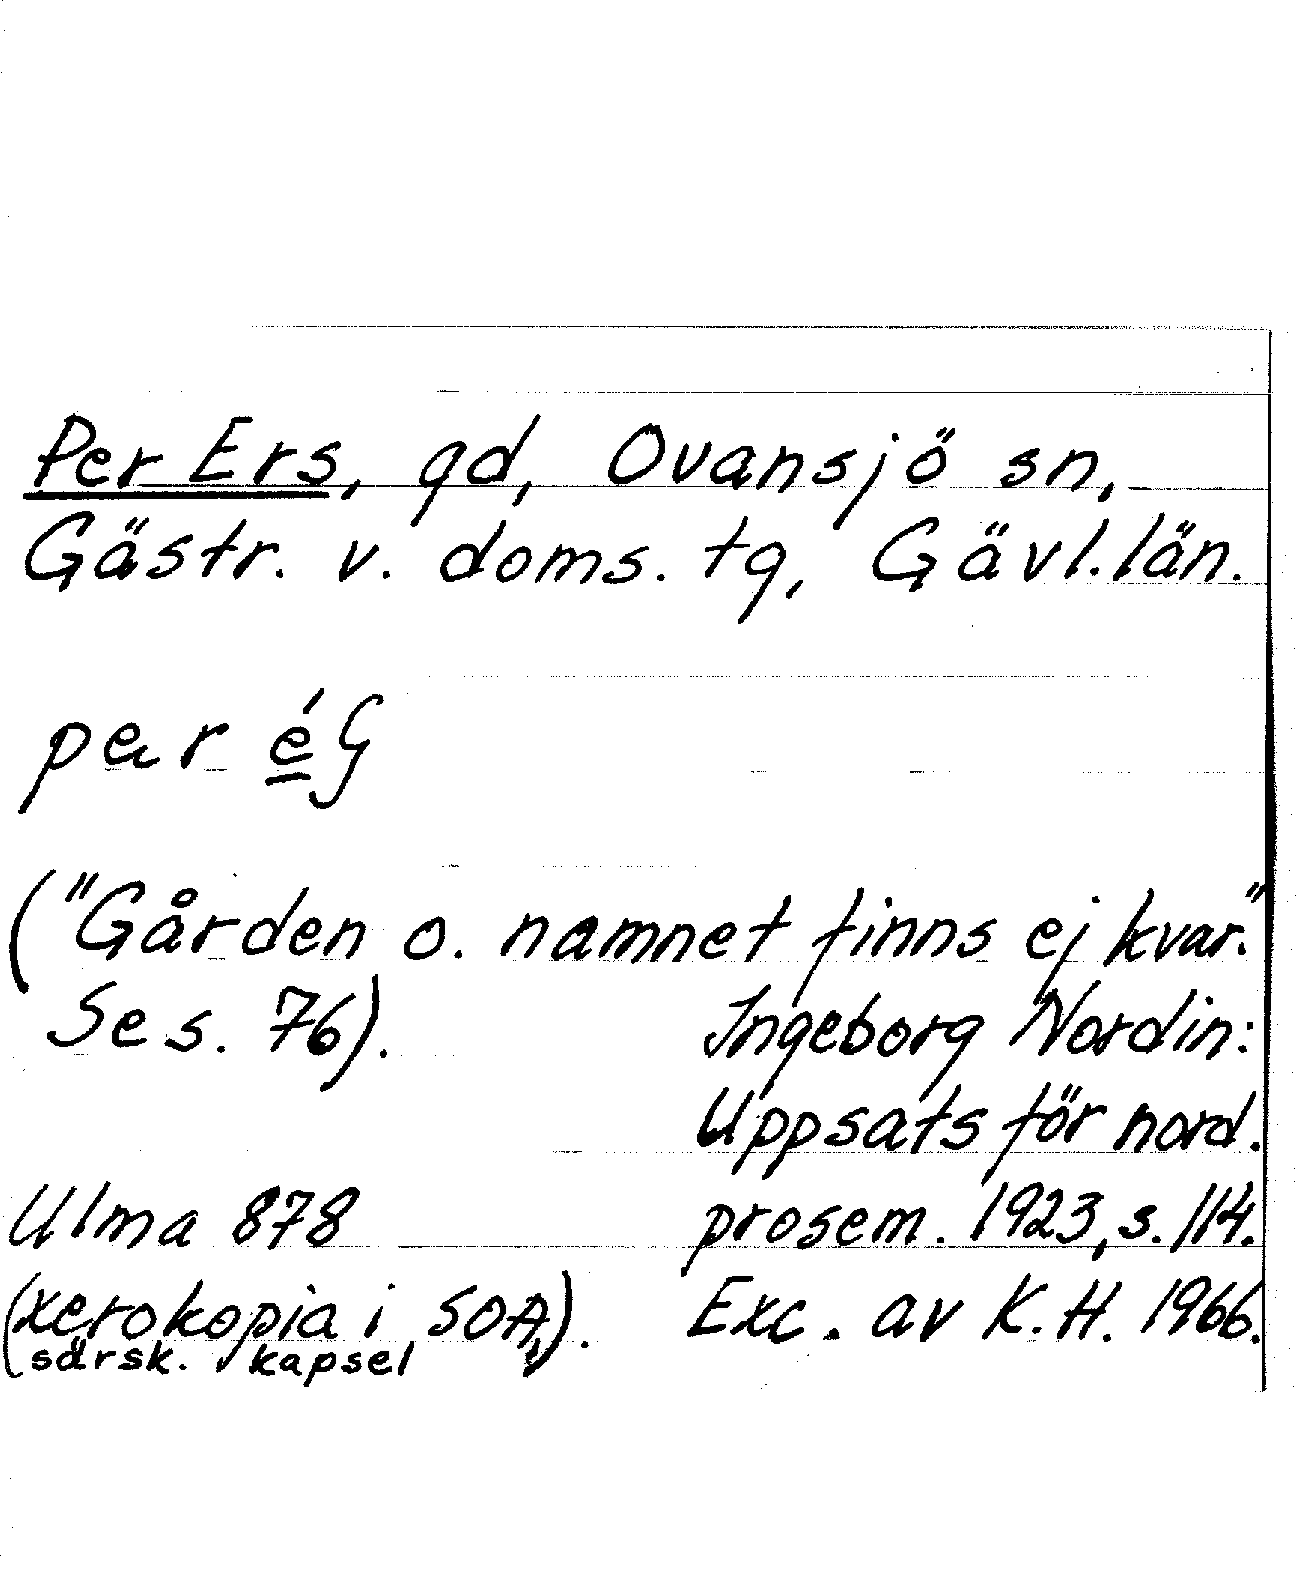 Per Ers, gd, Ovansjö sn,
Gästr. v. doms. tg, Gävl. län.
per
("Gården o. namnet finns ej kvar."
Se s. 76).
Ingeborg Nordin:
Uppsats för nord.
prosem. 1923, s. 114.
Ulma 878
(xerokopia i SOA,).
särsk. kapsel
Exc. av K.H. 1966.